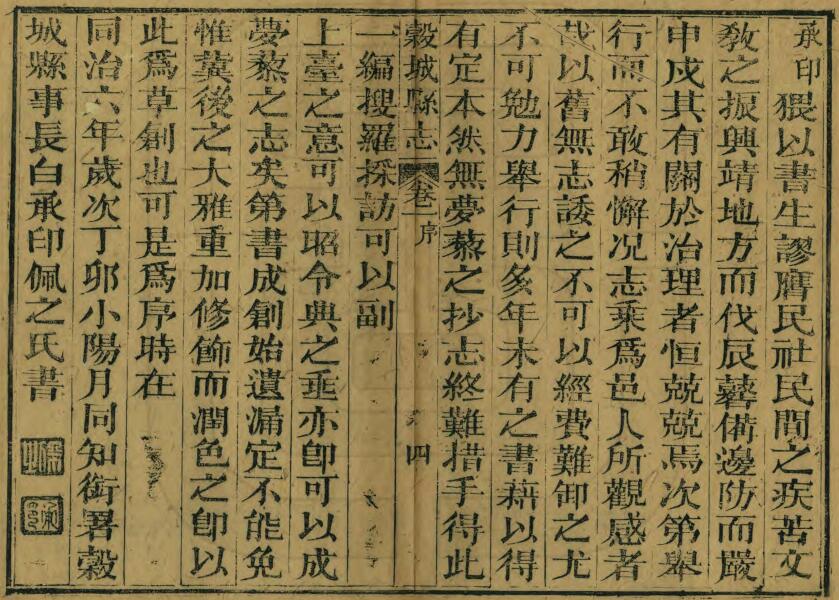 承印猥以書生謬膺民社民間之疾苦文
敎之振興靖地方而伐辰警備邊防而嚴
申戍其有關於治理者恒兢兢焉次第舉
行而不敢稍懈况志乘爲邑人所觀感者
哉以舊無志諉之不可以經費難卸之尤
不可勉力舉行則多年未有之書藉以得
有定本然無夢藜之抄志終難措手得此
穀城縣志 卷一 序 四
一編搜羅採訪可以副
上臺之意可以昭令典之垂亦卽可以成
夢藜之志矣第書成創始遺漏定不能免
惟冀後之大雅重加修飾而潤色之卽以
此爲草創也可是爲序時在
同治六年歲次丁卯小陽月同知銜署穀
城縣事長白承印佩之氏書